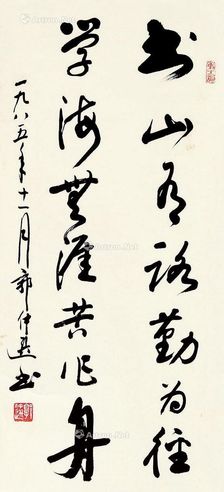 书山有路勤为径
学海无涯苦作舟
一九八五年十一月郭仲选书